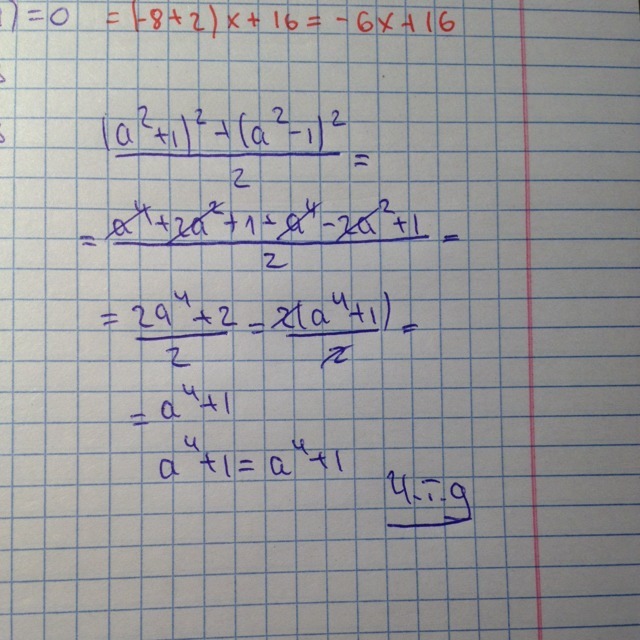 1) = 0 = (-8+2)x+16 = -6x+16
(a²+1)²+(a²-1)² / 2 =
= a⁴+2a²+1+a⁴-2a²+1 / 2 =
= 2a⁴+2 / 2 = 2(a⁴+1) / 2 =
= a⁴+1
a⁴+1 = a⁴+1
Ч.Т.д